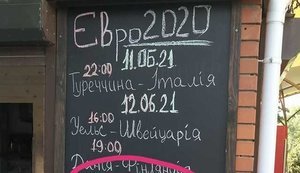 Євро2020
11.06.21
22:00
Туреччина-Італія
12.06.21
16:00
Уельс-Швейцарія
19:00
Данія-Фінляндія